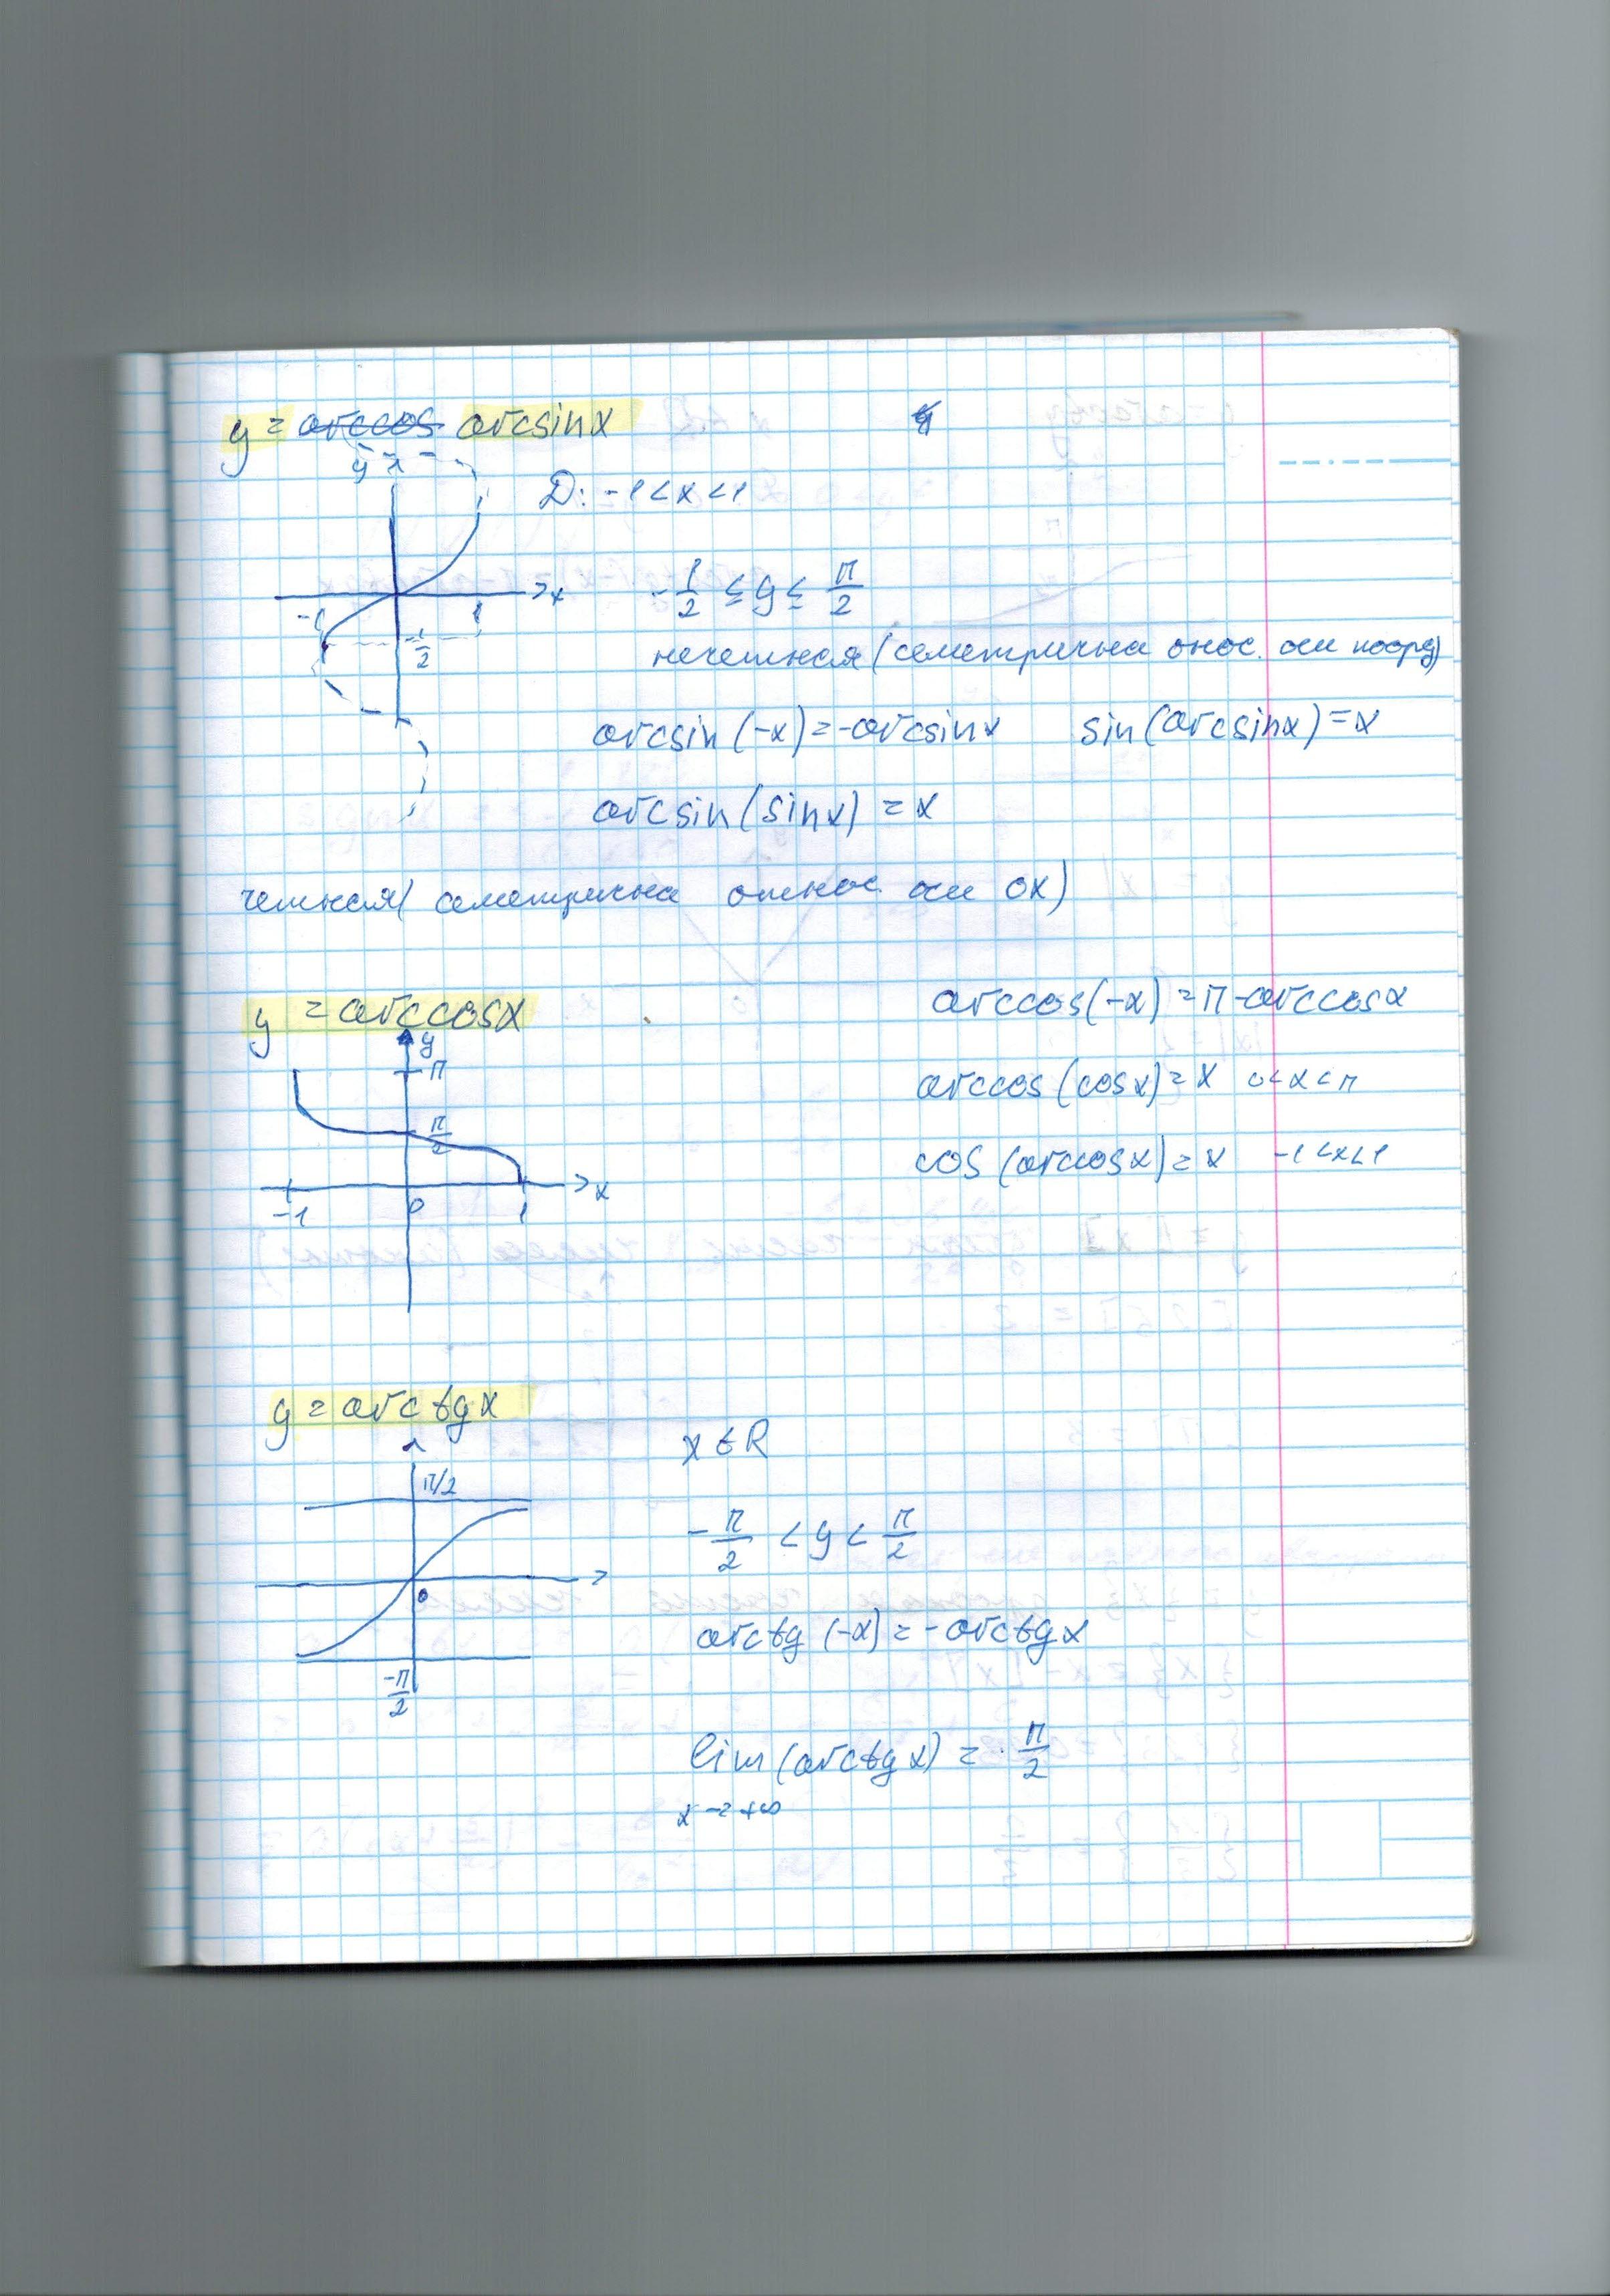 y = arccos arcsinx
y
D: -1<x<1
x
-1/2 ≤ y ≤ π/2
-1 1
-1/2
нечетная (семетрична онос. оси коорд)
arcsin(-x)=-arcsinx sin(arcsinx)=x
arcsin(sinx) = x
четная( семетрична относ. оси OX)
y = arccosx
arccos(-x) = π-arccosx
y
π
arccos(cosx)=x 0<x<π
π/2
cos(arccosx)=x -1<x<1
x
-1 0 1
y = arctgx
x ∈ R
π/2
-π/2 < y < π/2
0
arctg(-x) = -arctgx
-π/2
lim(arctgx) = π/2
x→+∞